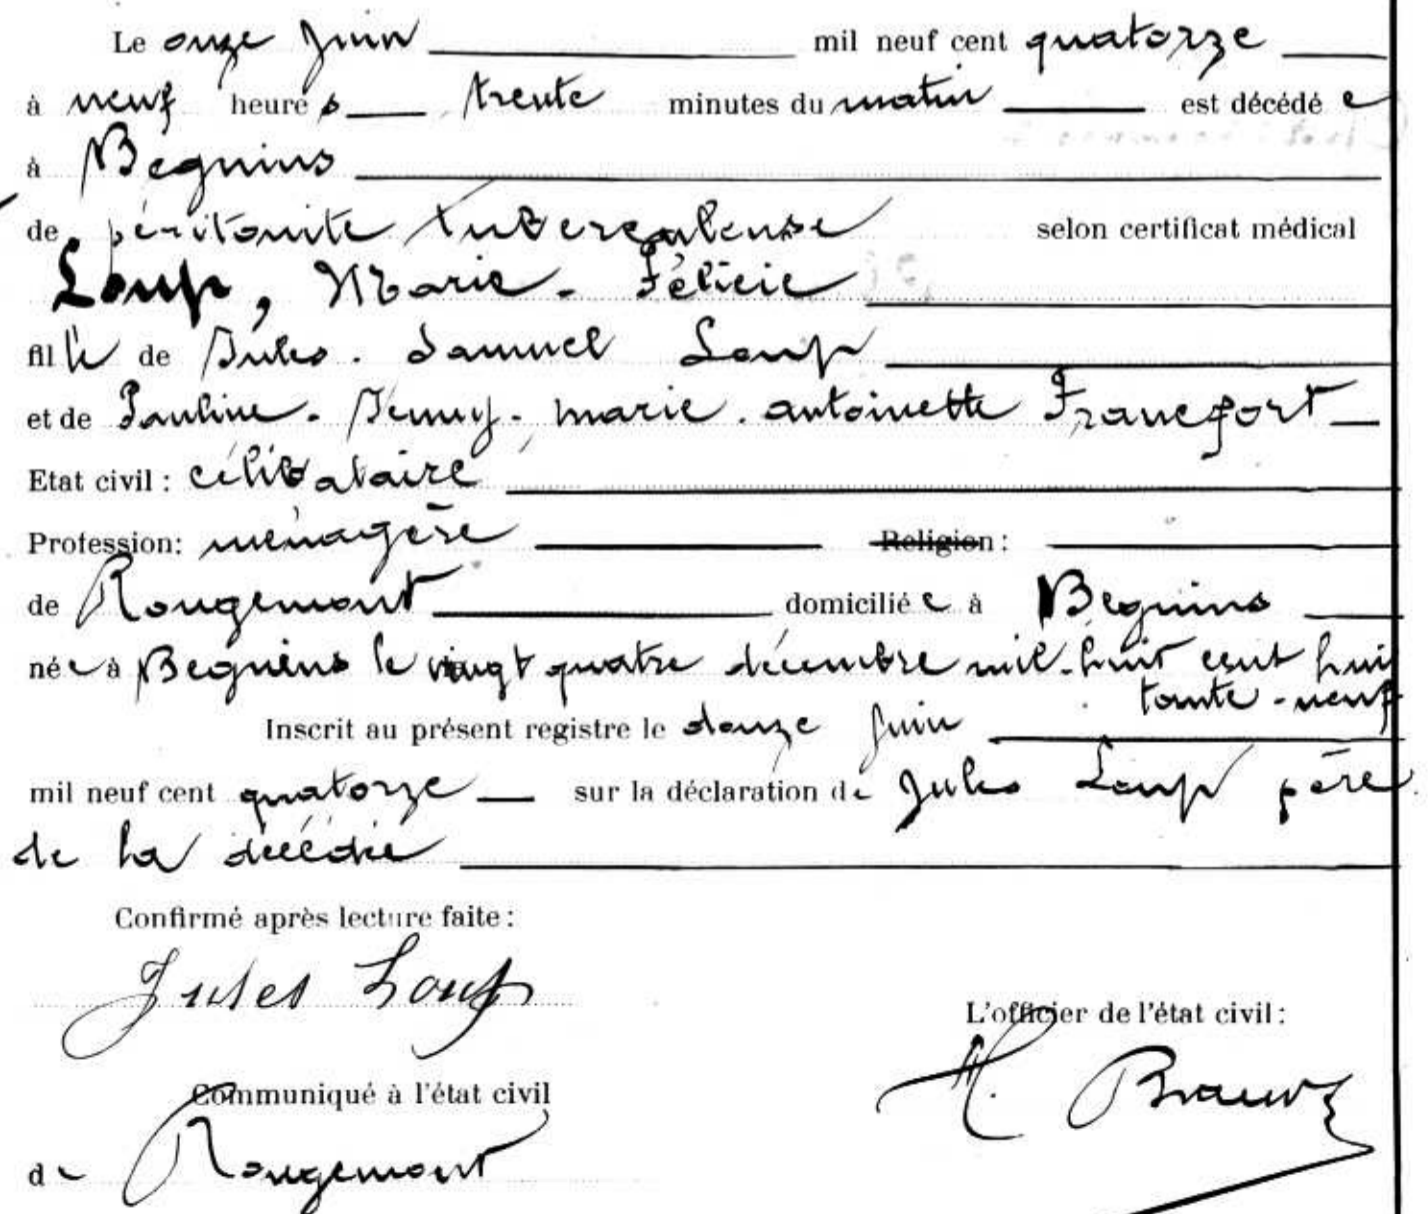 Le onze Juin mil neuf cent quatorze
à neuf heures trente minutes du matin est décédée
à Begnins
de péritonite tuberculeuse selon certificat médical
Loup, Marie-Félicie
fille de Jules-Samuel Loup
et de Pauline-Jenny-Marie-Antoinette Francfort
Etat civil : célibataire
Profession: ménagère Religion:
de Rougemont domiciliée à Begnins
née à Begnins le vingt quatre décembre mil-huit cent hui
tante-neuf
Inscrit au présent registre le douze Juin
mil neuf cent quatorze sur la déclaration de Jules Loup père
de la décédée
Confirmé après lecture faite:
Jules Loup
L'officier de l'état civil:
Communiqué à l'état civil
de Rougemont